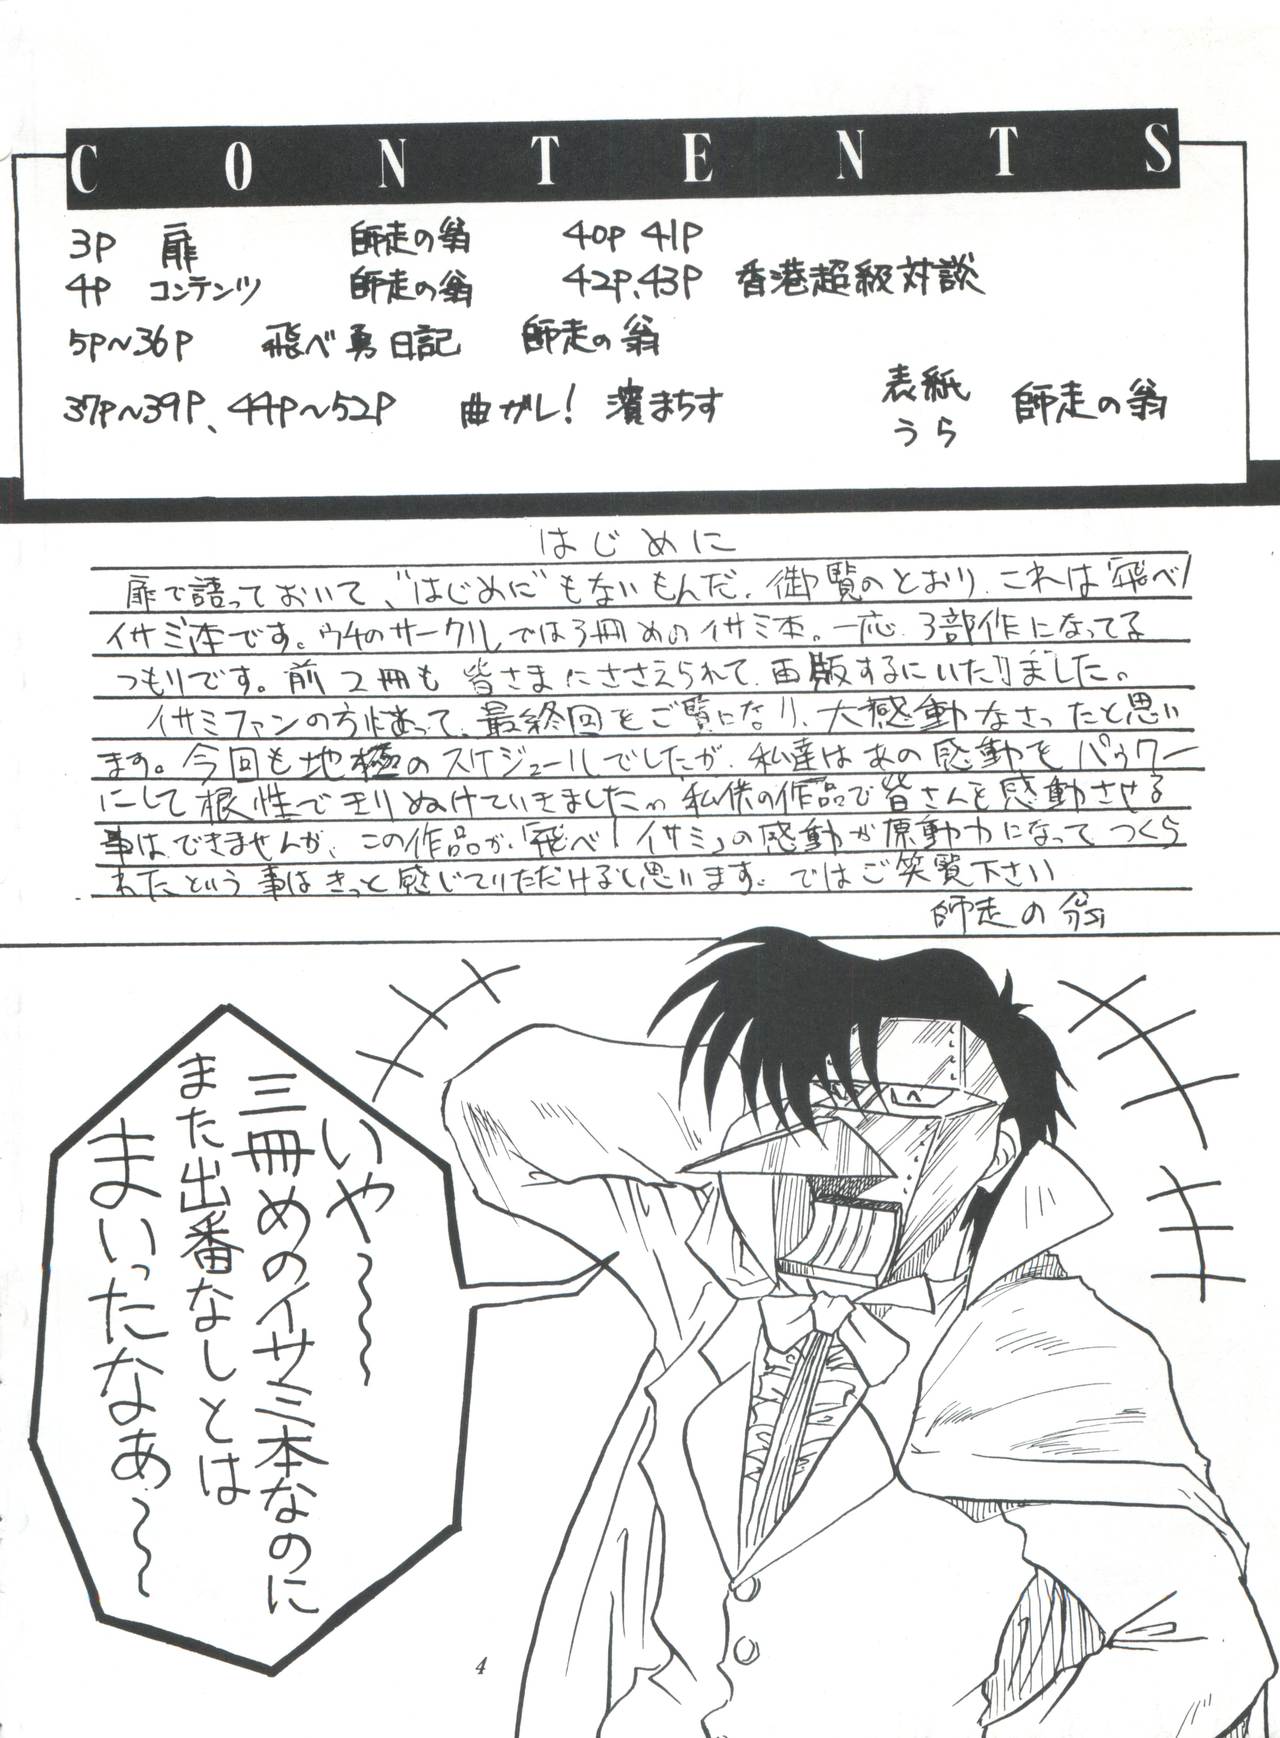 CONTENTS
3P 扉 師走の翁
4P コンテンツ 師走の翁
5P～36P 飛べ勇日記 師走の翁
37P～39P、44P～52P 曲がレ! 濱まちす
40P 41P
42P、43P 香港超級対談
表紙
うら 師走の翁
はじめに
扉で語っておいて、"はじめに"もないもんだ。御覧のとおり、これは「飛べ!
イサミ」本です。ウチのサークルでは3冊めのイサミ本。一応、3部作になってる
つもりです。前2冊も皆さまにささえられて、再版するにいたりました。
イサミファンの方にあって、最終回をご覧になり、大感動なさったと思い
ます。今回も地極のスケジュールでしたが、私達はあの感動をパゥワー
にして根性できりぬけていきました。私供の作品で皆さんを感動させる
事はできませんが、この作品が「飛べ!イサミ」の感動が原動力になって、つくら
れたという事はきっと感じていただけると思います。ではご笑覧下さい
師走の翁
いや～～～
三冊めのイサミ本なのに
また出番なしとは
まいったなあ～～
4